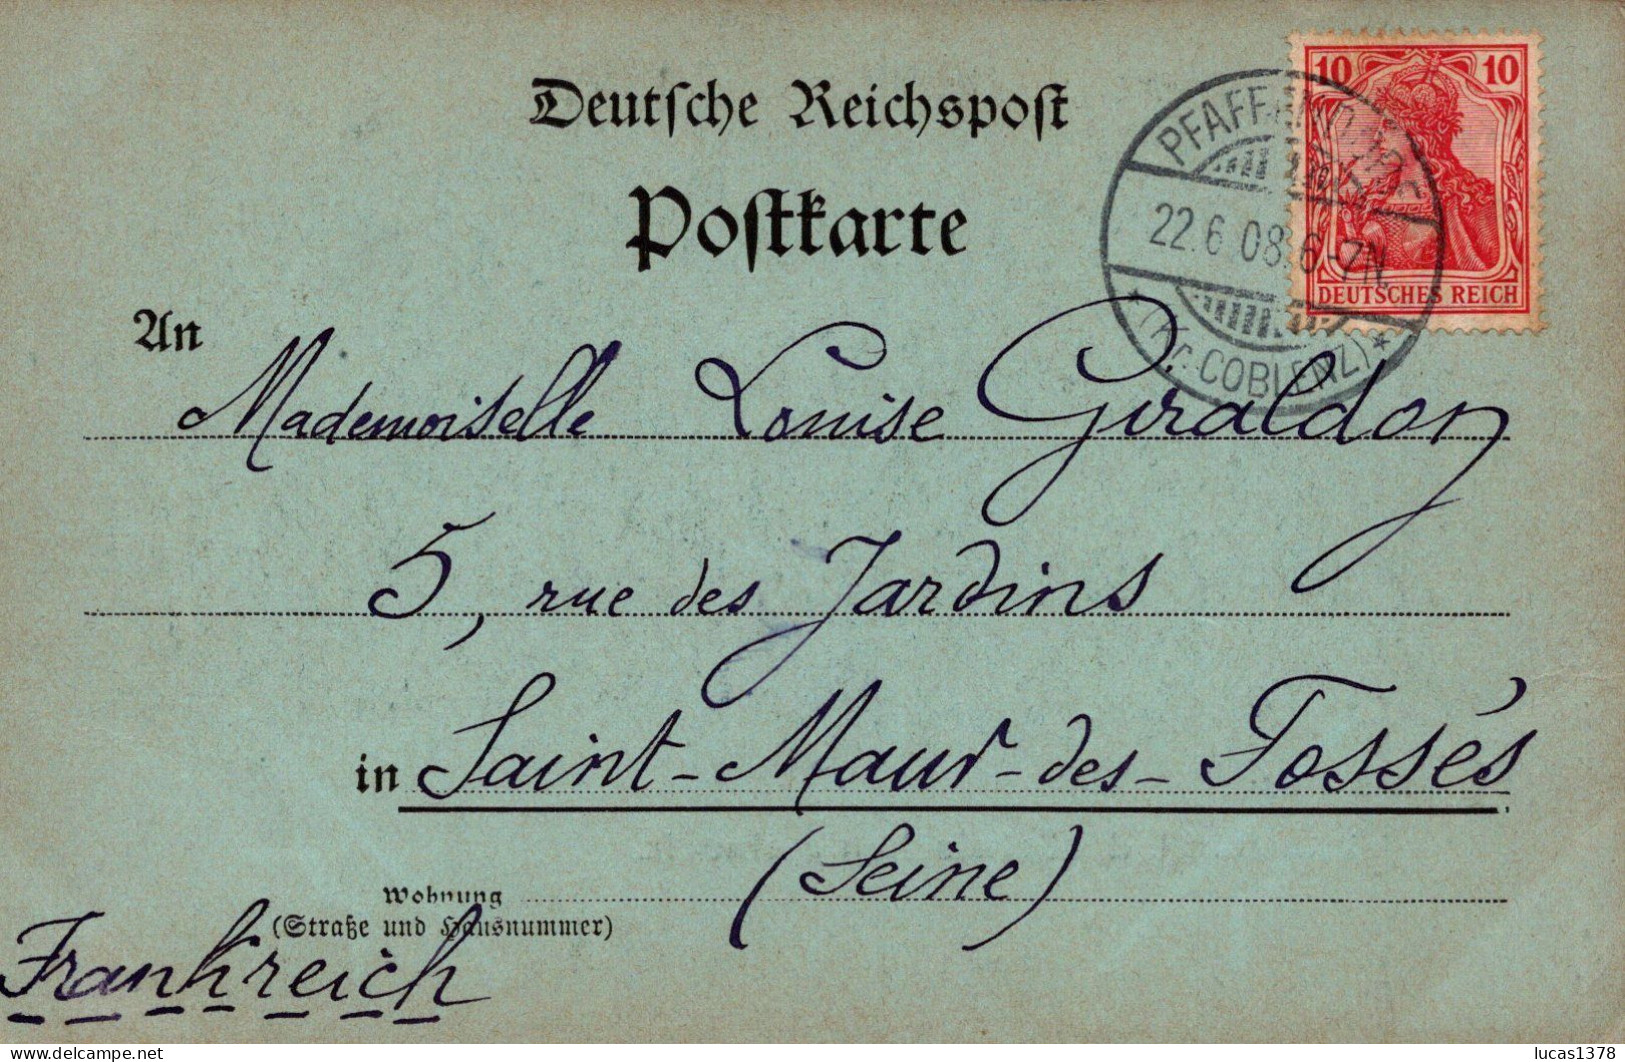 Deutsche Reichspost
Postkarte
10 10
DEUTSCHES REICH
PFAFFENDORF
22.6.08. 6-7N.
* (Kr. COBLENZ) *
An Mademoiselle Louise Giraldon
5, rue des Jardins
in Saint-Maur-des-Fossés
(Seine)
Wohnung
(Straße und Hausnummer)
Frankreich
delcampe.net
lucas1378